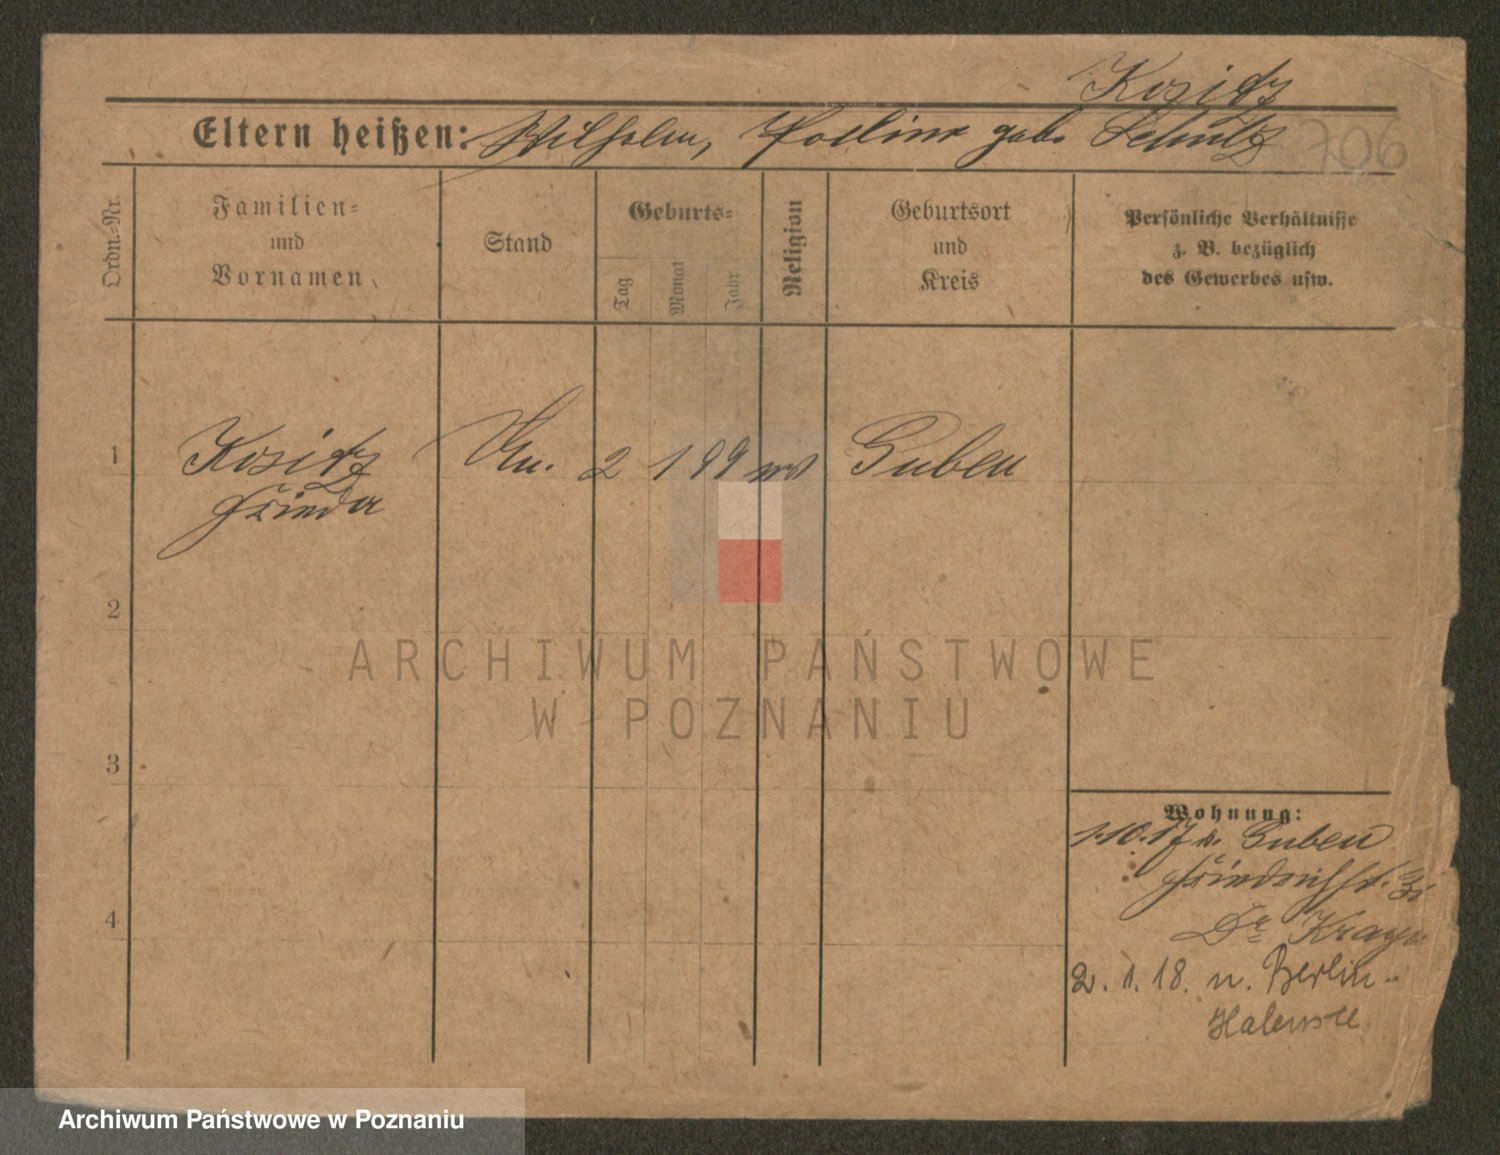 Kozitz
Eltern heißen: Wilhelm, Pauline geb. Schultz
706
Ordn.-Nr.
Familien-
und
Vornamen
Stand
Geburts-
Tag
Monat
Jahr
Religion
Geburtsort
und
Kreis
Persönliche Verhältnisse
z. B. bezüglich
des Gewerbes usw.
1 Kozitz 2 1 99 Guben
Frieda
2
3
4
Wohnung:
1.10.17 Guben
Friedrichstr.
Dr
2. 1. 18. n. Berlin-
Halensee
ARCHIWUM PAŃSTWOWE
W POZNANIU
Archiwum Państwowe w Poznaniu